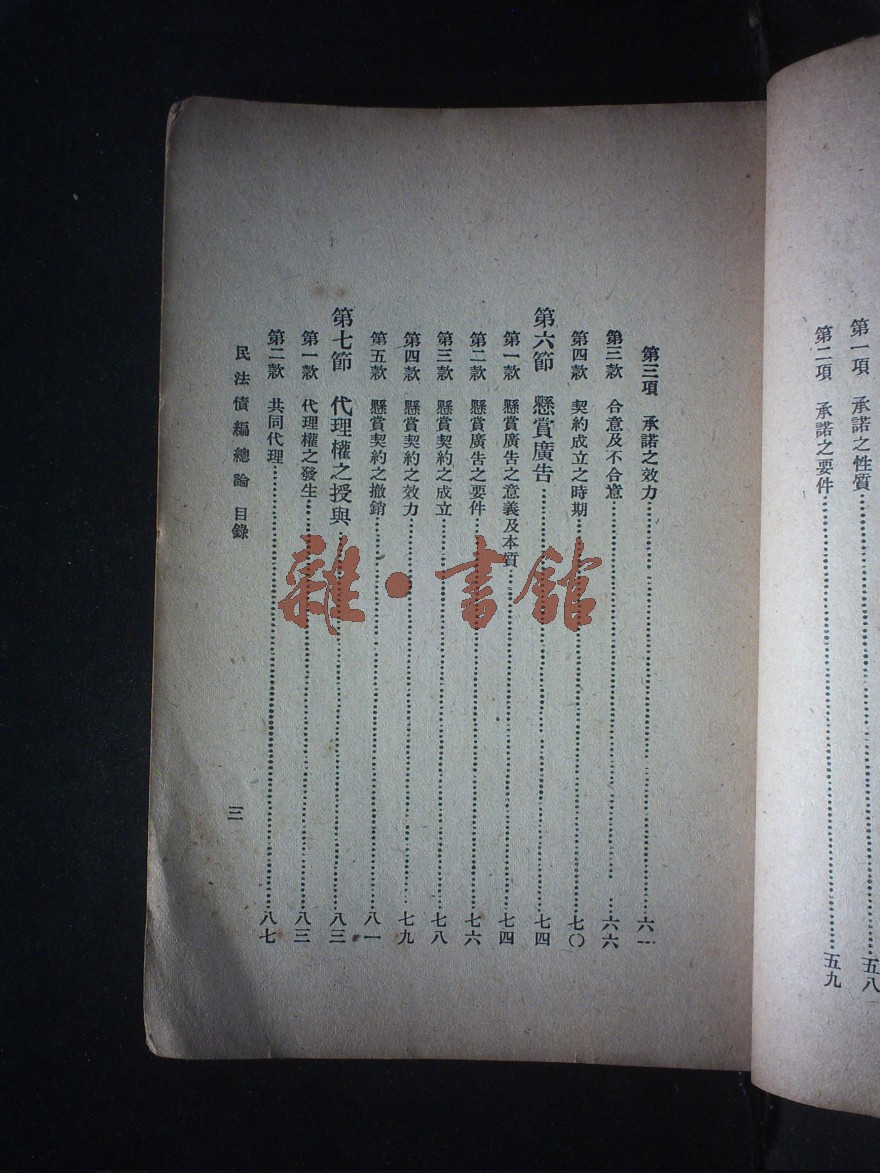 第一項 承諾之性質……五八
第二項 承諾之要件……五九
第三項 承諾之效力……六一
第三款 合意及不合意……六六
第四款 契約成立之時期……七〇
第六節 懸賞廣告……七四
第一款 懸賞廣告之意義及本質……七四
第二款 懸賞廣告之要件……七六
第三款 懸賞契約之成立……七八
第四款 懸賞契約之效力……七九
第五款 懸賞契約之撤銷……八一
第七節 代理權之授與……八三
第一款 代理權之發生……八三
第二款 共同代理……八七
民法債編總論 目錄 三
雜·書館